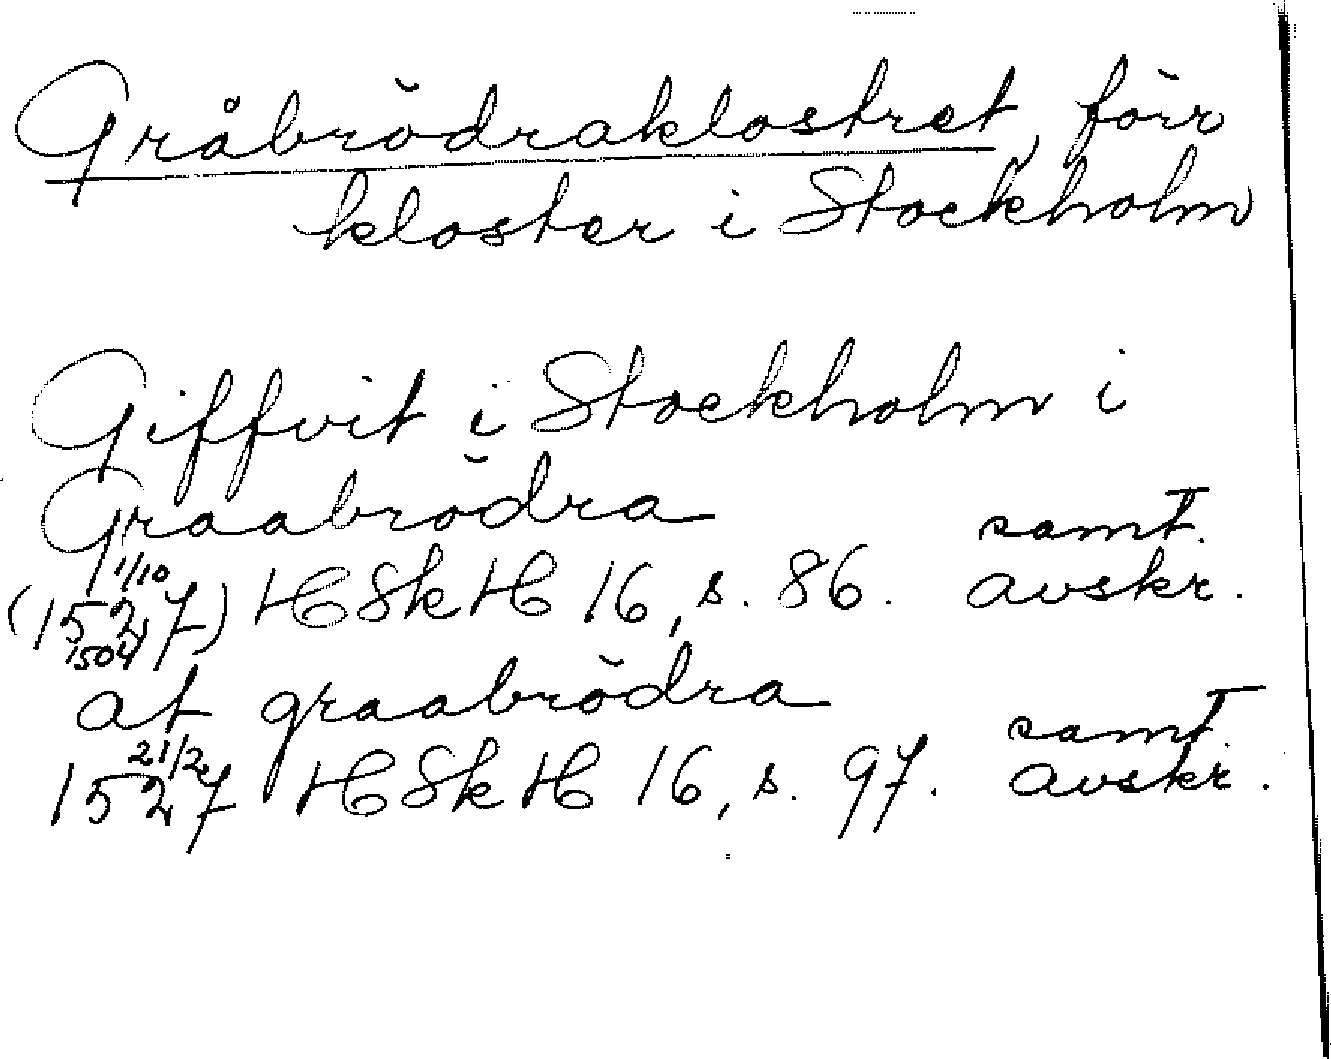 Gråbrödraklostret, förr
kloster i Stockholm
Giffvit i Stockholm i
Graabrödra samt.
1/10
(1527) HSkH 16, s. 86. avskr.
1504
at graabrödra samt.
21/2
1527 HSkH 16, s. 97. avskr.